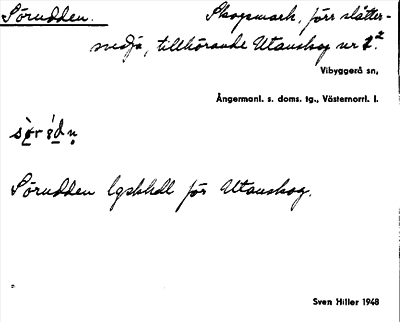 Sörudden. Skogsmark, förr slåtter-
nedja, tillhörande Utanskog nr 2².
Vibyggerå sn,
Ångermanl. s. doms. tg., Västernorrl. l.
Sörudden lgskhdl för Utanskog.
Sven Hiller 1948